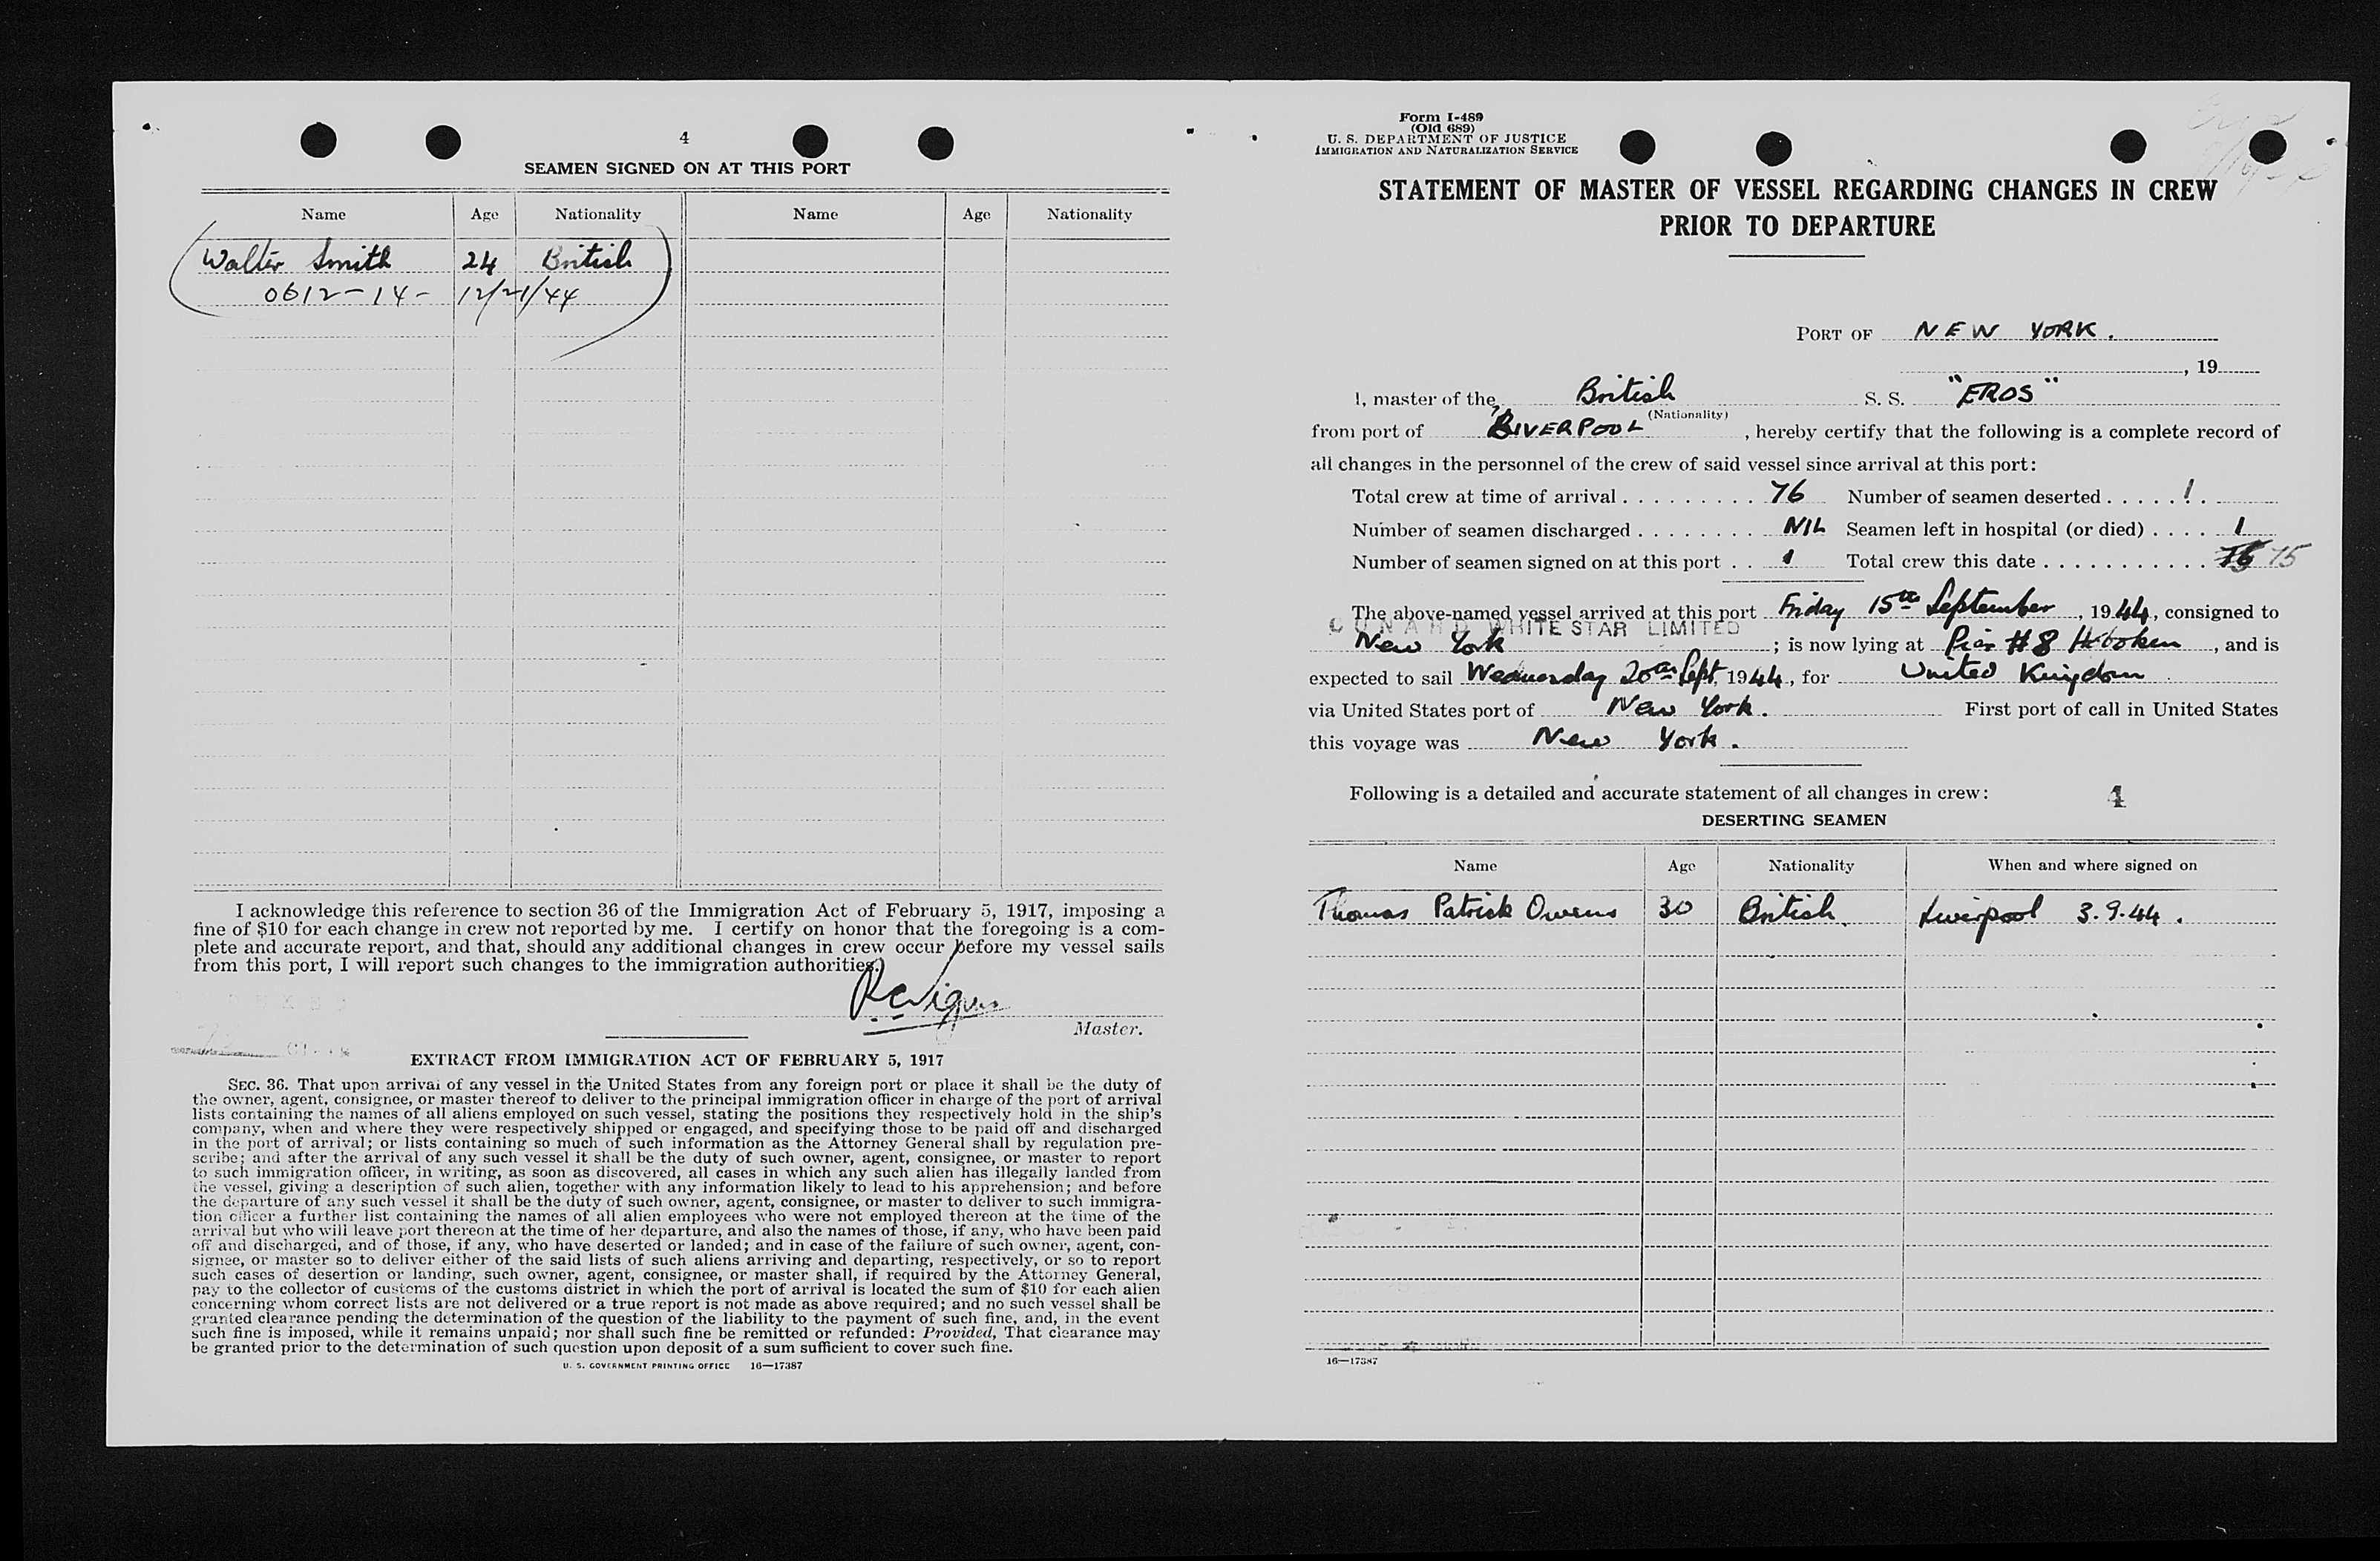 4
SEAMEN SIGNED ON AT THIS PORT
Name Age Nationality Name Age Nationality
Walter Smith 24 British
0612-14- 12/21/44
I acknowledge this reference to section 36 of the Immigration Act of February 5, 1917, imposing a
fine of $10 for each change in crew not reported by me. I certify on honor that the foregoing is a com-
plete and accurate report, and that, should any additional changes in crew occur before my vessel sails
from this port, I will report such changes to the immigration authorities.
Master.
EXTRACT FROM IMMIGRATION ACT OF FEBRUARY 5, 1917
SEC. 36. That upon arrival of any vessel in the United States from any foreign port or place it shall be the duty of
the owner, agent, consignee, or master thereof to deliver to the principal immigration officer in charge of the port of arrival
lists containing the names of all aliens employed on such vessel, stating the positions they respectively hold in the ship's
company, when and where they were respectively shipped or engaged, and specifying those to be paid off and discharged
in the port of arrival; or lists containing so much of such information as the Attorney General shall by regulation pre-
scribe; and after the arrival of any such vessel it shall be the duty of such owner, agent, consignee, or master to report
to such immigration officer, in writing, as soon as discovered, all cases in which any such alien has illegally landed from
the vessel, giving a description of such alien, together with any information likely to lead to his apprehension; and before
the departure of any such vessel it shall be the duty of such owner, agent, consignee, or master to deliver to such immigra-
tion officer a further list containing the names of all alien employees who were not employed thereon at the time of the
arrival but who will leave port thereon at the time of her departure, and also the names of those, if any, who have been paid
off and discharged, and of those, if any, who have deserted or landed; and in case of the failure of such owner, agent, con-
signee, or master so to deliver either of the said lists of such aliens arriving and departing, respectively, or so to report
such cases of desertion or landing, such owner, agent, consignee, or master shall, if required by the Attorney General,
pay to the collector of customs of the customs district in which the port of arrival is located the sum of $10 for each alien
concerning whom correct lists are not delivered or a true report is not made as above required; and no such vessel shall be
granted clearance pending the determination of the question of the liability to the payment of such fine, and, in the event
such fine is imposed, while it remains unpaid; nor shall such fine be remitted or refunded: Provided, That clearance may
be granted prior to the determination of such question upon deposit of a sum sufficient to cover such fine.
U. S. GOVERNMENT PRINTING OFFICE 16—17387
Form I-489
(Old 689)
U. S. DEPARTMENT OF JUSTICE
IMMIGRATION AND NATURALIZATION SERVICE
STATEMENT OF MASTER OF VESSEL REGARDING CHANGES IN CREW
PRIOR TO DEPARTURE
PORT OF NEW YORK.
, 19
I, master of the British S. S. "EROS"
(Nationality)
from port of LIVERPOOL, hereby certify that the following is a complete record of
all changes in the personnel of the crew of said vessel since arrival at this port:
Total crew at time of arrival . . . . . . . . . 76 Number of seamen deserted . . . . . 1.
Number of seamen discharged . . . . . . . . NIL Seamen left in hospital (or died) . . . . 1
Number of seamen signed on at this port . . 1 Total crew this date . . . . . . . . . . . 75
The above-named vessel arrived at this port Friday 15th September, 1944, consigned to
CUNARD WHITE STAR LIMITED
New York; is now lying at Pier #8 Hoboken, and is
expected to sail Wednesday 20th Sept, 1944, for United Kingdom
via United States port of New York. First port of call in United States
this voyage was New York.
Following is a detailed and accurate statement of all changes in crew: 4
DESERTING SEAMEN
Name Age Nationality When and where signed on
Thomas Patrick Owens 30 British Liverpool 3.9.44.
16—17387